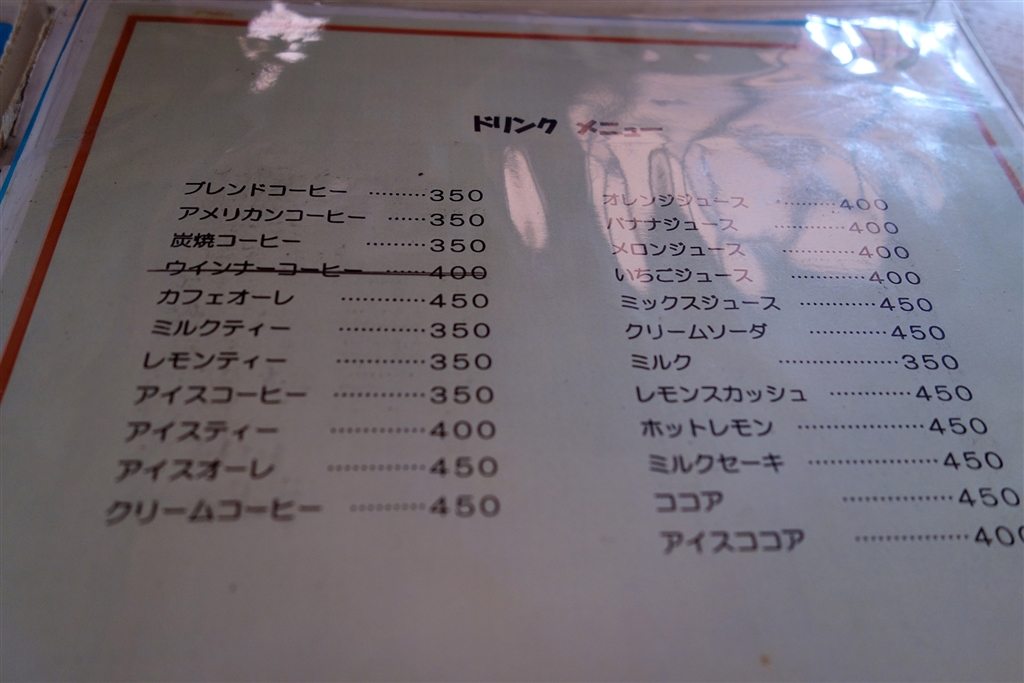 ドリンク メニュー
ブレンドコーヒー ………350
アメリカンコーヒー ……350
炭焼コーヒー ………350
ウインナーコーヒー ……400
カフェオーレ …………450
ミルクティー …………350
レモンティー …………350
アイスコーヒー …………350
アイスティー …………400
アイスオーレ …………450
クリームコーヒー ………450
オレンジジュース ………400
バナナジュース …………400
メロンジュース …………400
いちごジュース …………400
ミックスジュース …………450
クリームソーダ …………450
ミルク ………………350
レモンスカッシュ …………450
ホットレモン ………………450
ミルクセーキ ………………450
ココア ……………450
アイスココア ……………400